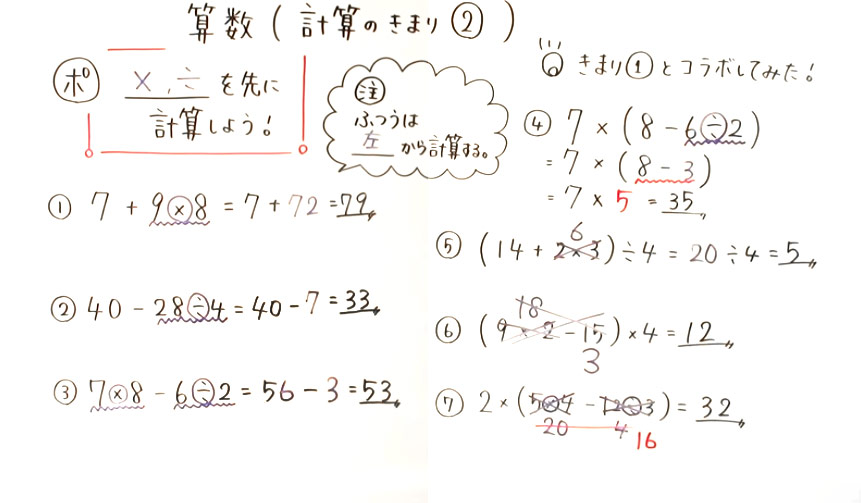 算数(計算のきまり②)
ポ ×,÷を先に
計算しよう!
注
ふつうは
左から計算する。
① 7 + 9×8 = 7 + 72 = 79
② 40 - 28÷4 = 40 - 7 = 33
③ 7×8 - 6÷2 = 56 - 3 = 53
きまり①とコラボしてみた!
④ 7 × (8 - 6÷2)
= 7 × (8 - 3)
= 7 × 5 = 35
6
⑤ (14 + 2×3)÷4 = 20÷4 = 5
18
⑥ (9×2 - 15)×4 = 12
3
⑦ 2×(5×4 - 12÷3) = 32
20 4 16